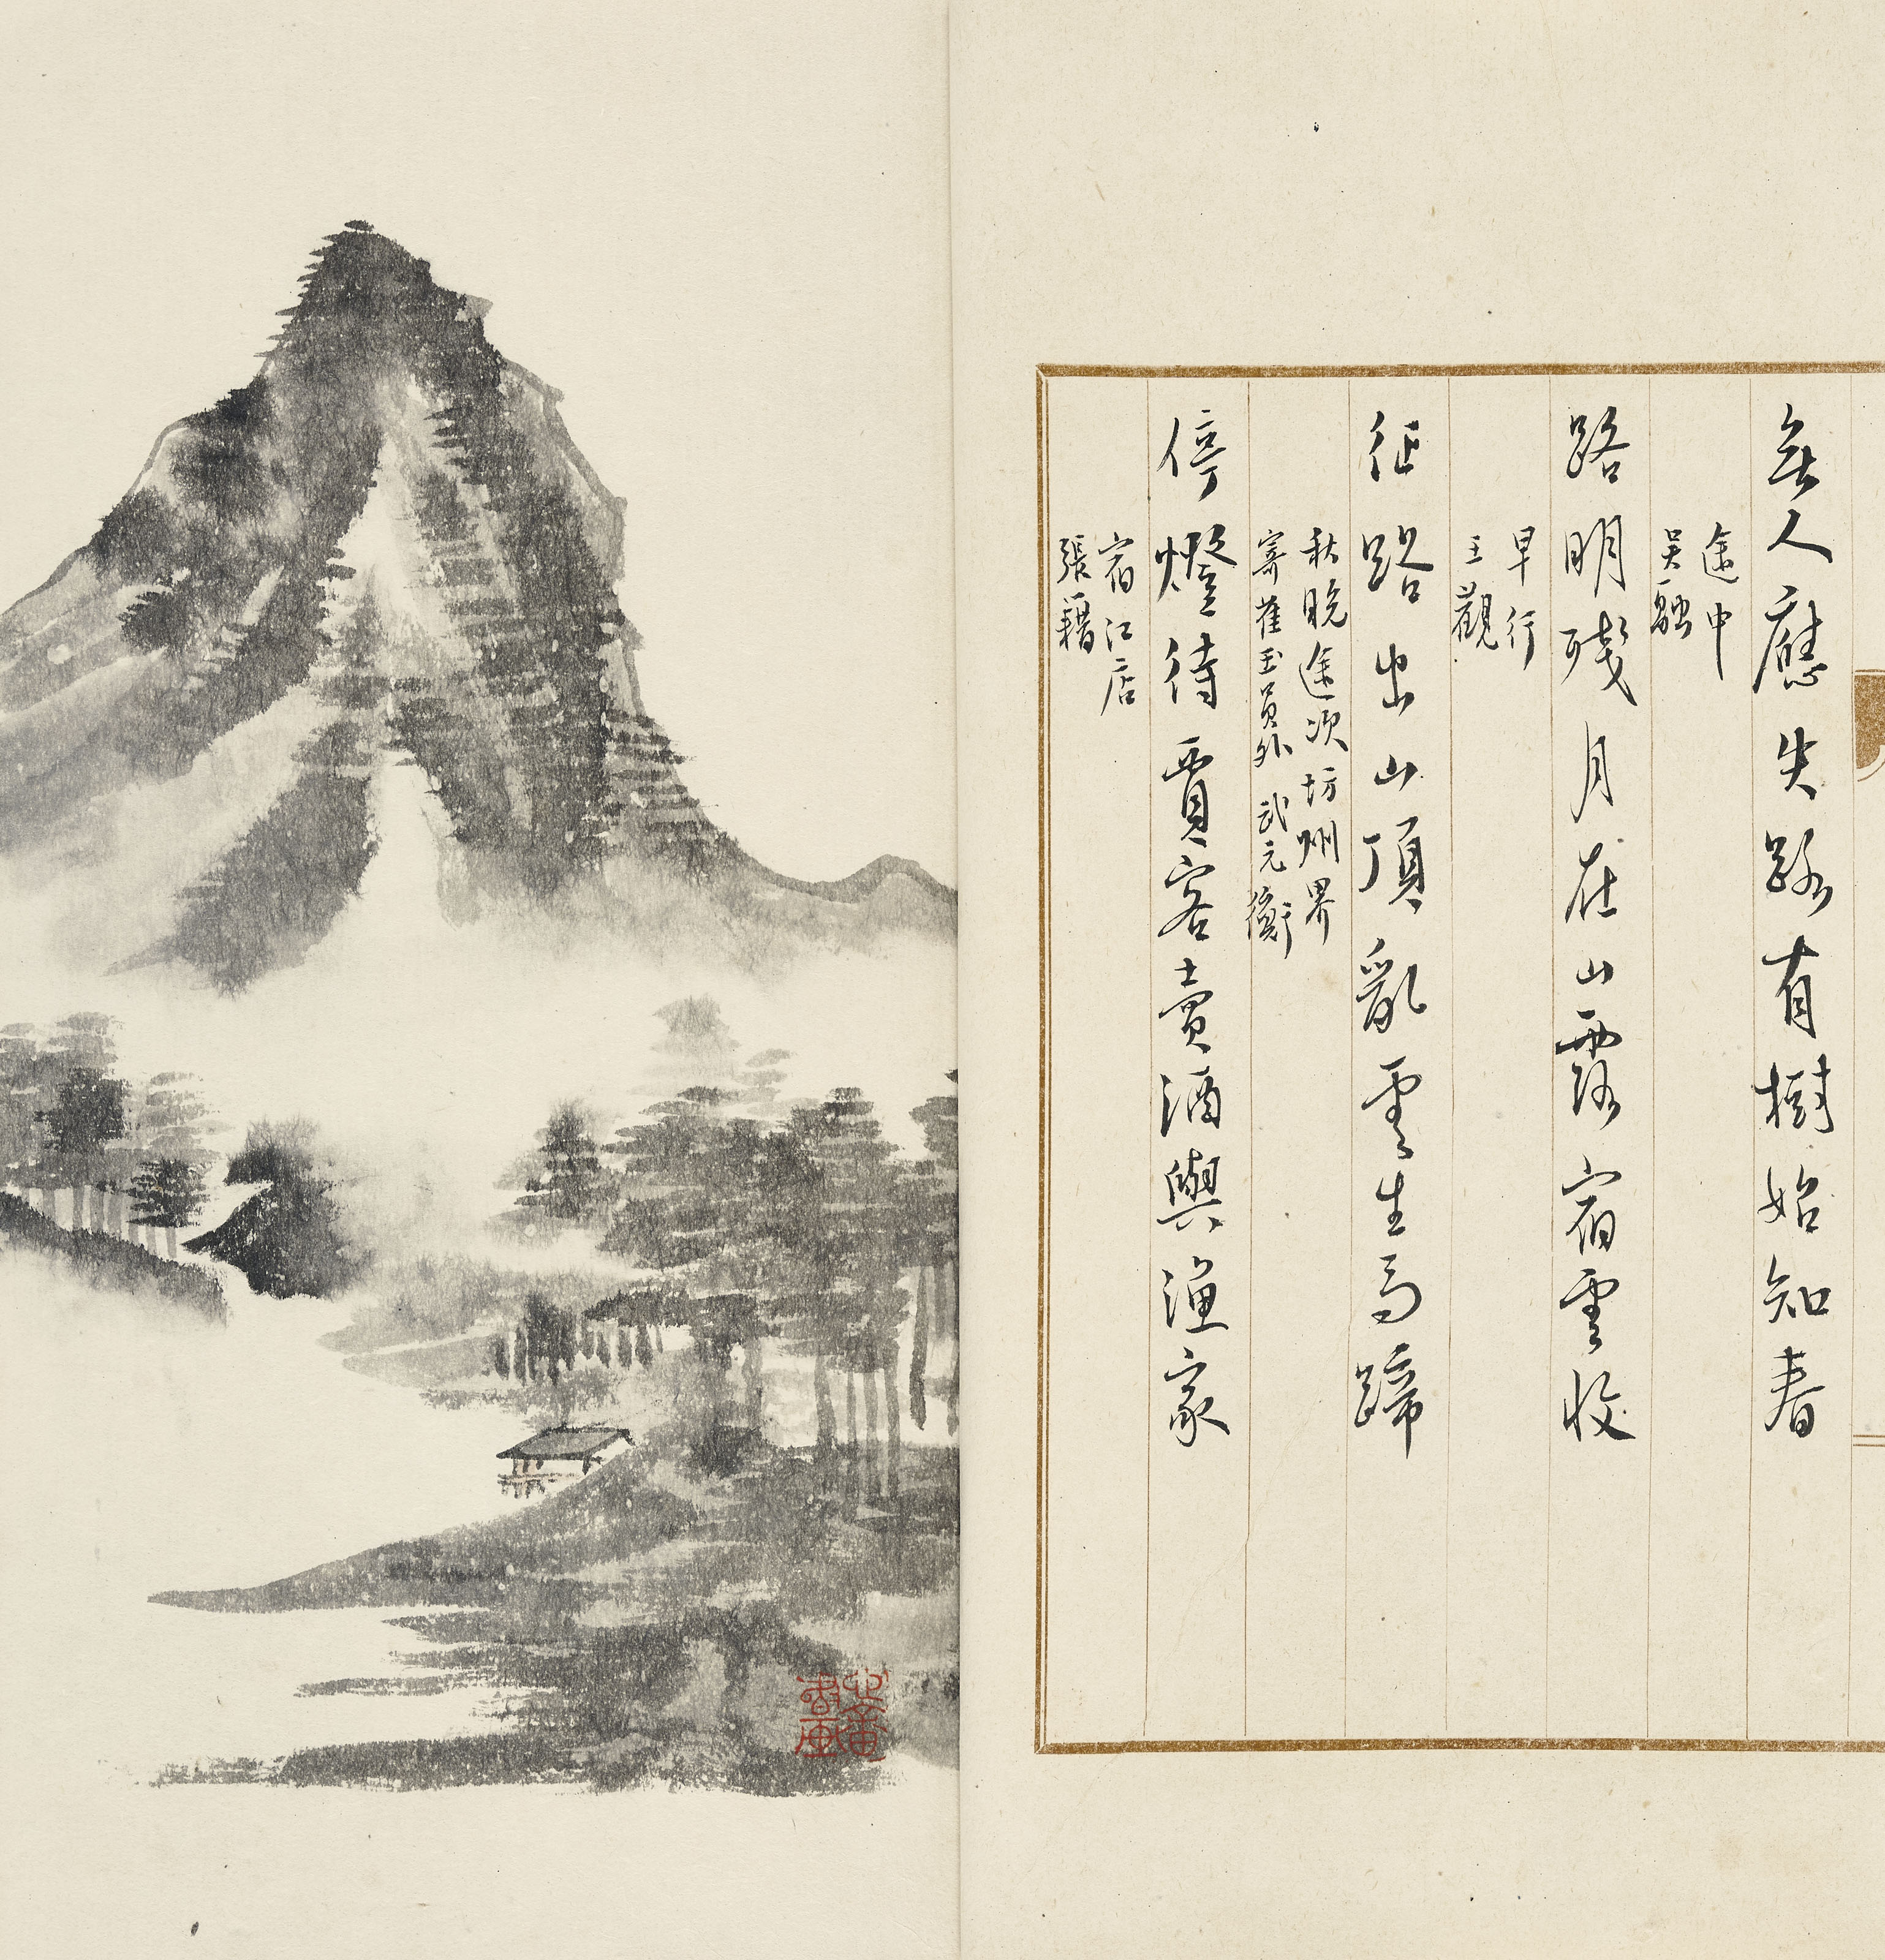 無人應失路有樹始知春
途中
吳融
路明殘月在山露宿雲收
早行
王觀
征路出山頂亂雲生馬蹄
秋晚途次坊州界
寄崔玉員外 武元衡
停燈待賈客賣酒與漁家
宿江店
張籍